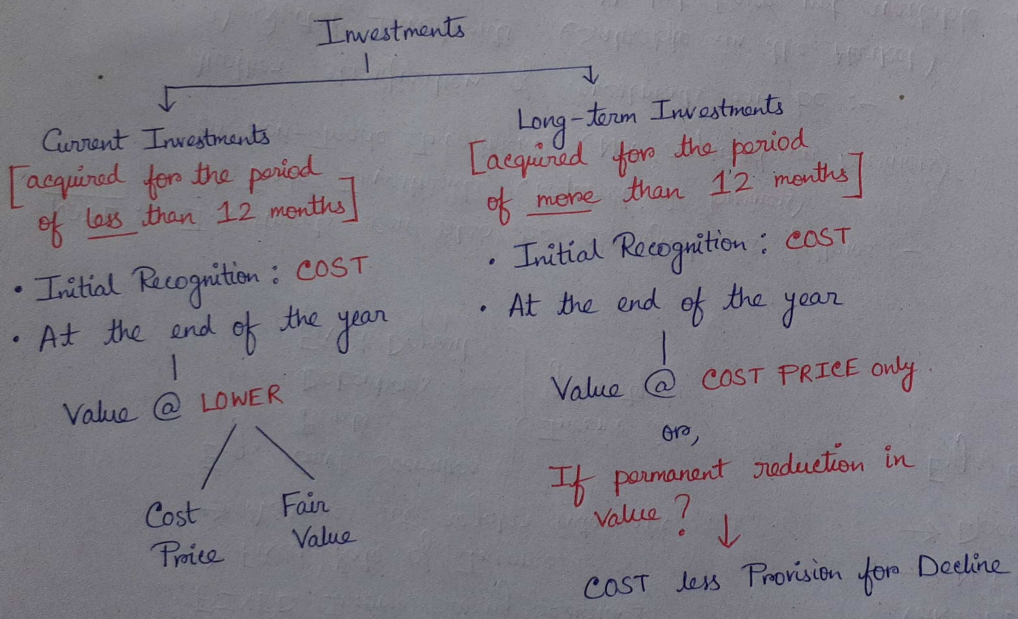 Investments
Current Investments
[acquired for the period
of less than 12 months]
• Initial Recognition : COST
• At the end of the year
Value @ LOWER
Cost
Price
Fair
Value
Long-term Investments
[acquired for the period
of more than 12 months]
• Initial Recognition : COST
• At the end of the year
Value @ COST PRICE only.
or,
If permanent reduction in
value ?
COST less Provision for Decline